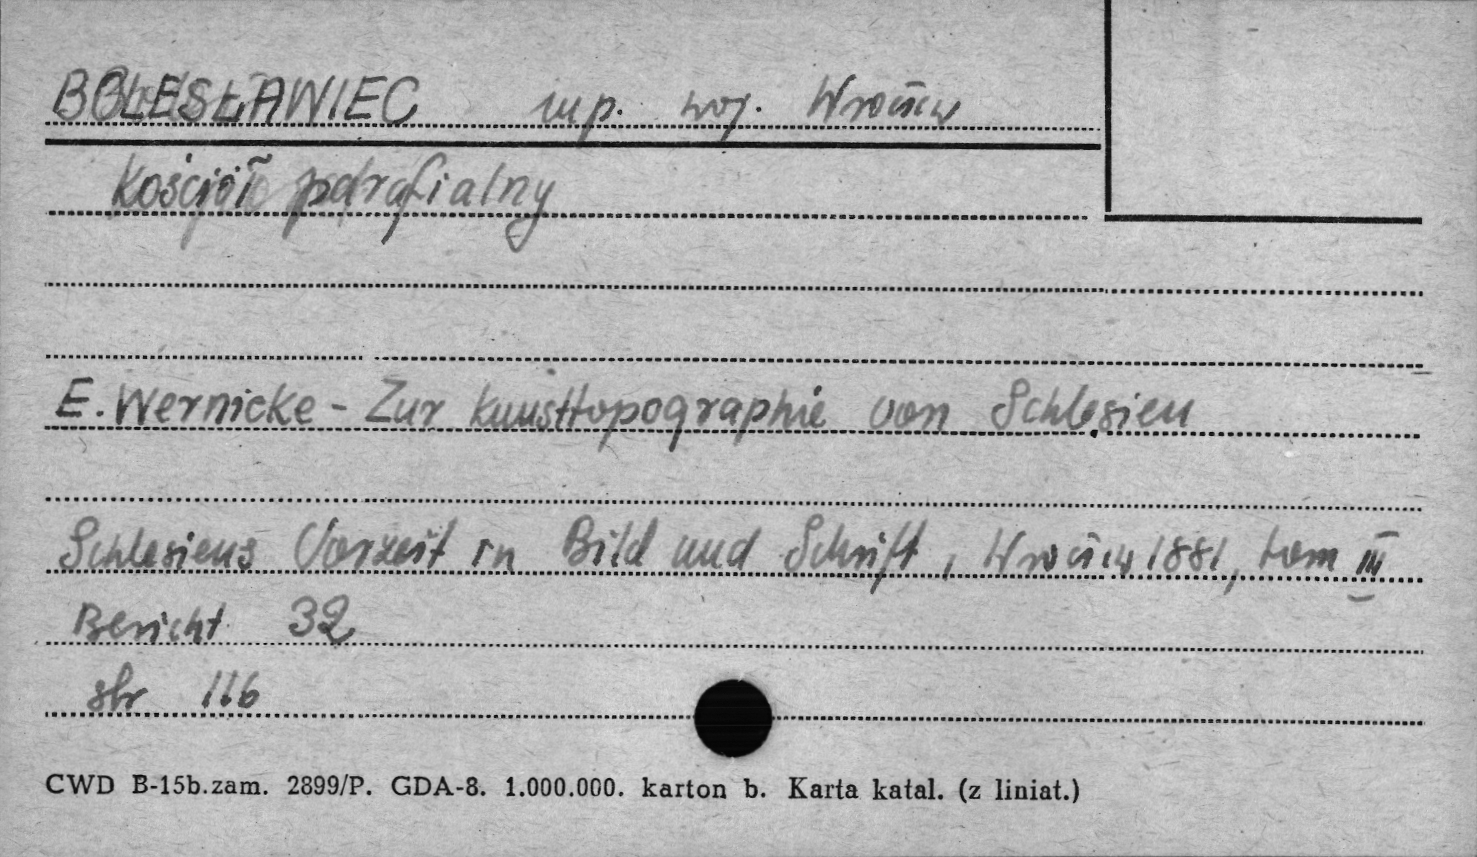 BOLESŁAWIEC mp. woj. Wrocław
Kościół parafialny
E. Wernicke - Zur Kunsttopographie von Schlesien
Schlesiens Vorzeit in Bild und Schrift, Wrocław 1881, tom III
Bericht 32
str 116
CWD B-15b.zam. 2899/P. GDA-8. 1.000.000. karton b. Karta katal. (z liniat.)